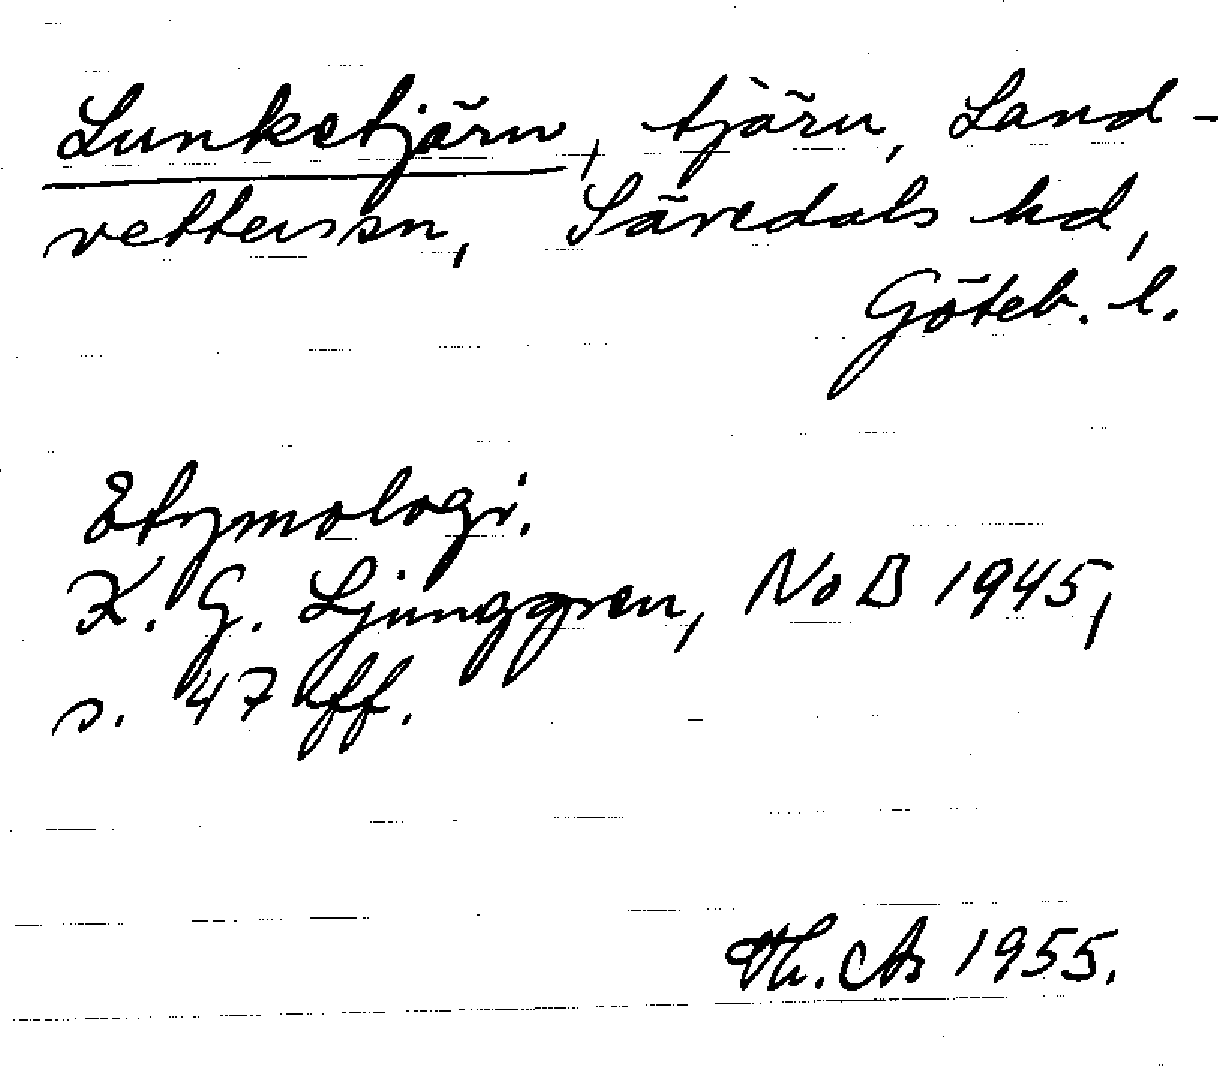 Lunketjärn, tjärn, Land-
vetters sn, Sävedals hd,
Göteb. l.
Etymologi.
K. G. Ljunggren, NoB 1945,
s. 47 ff.
Th. As 1955.